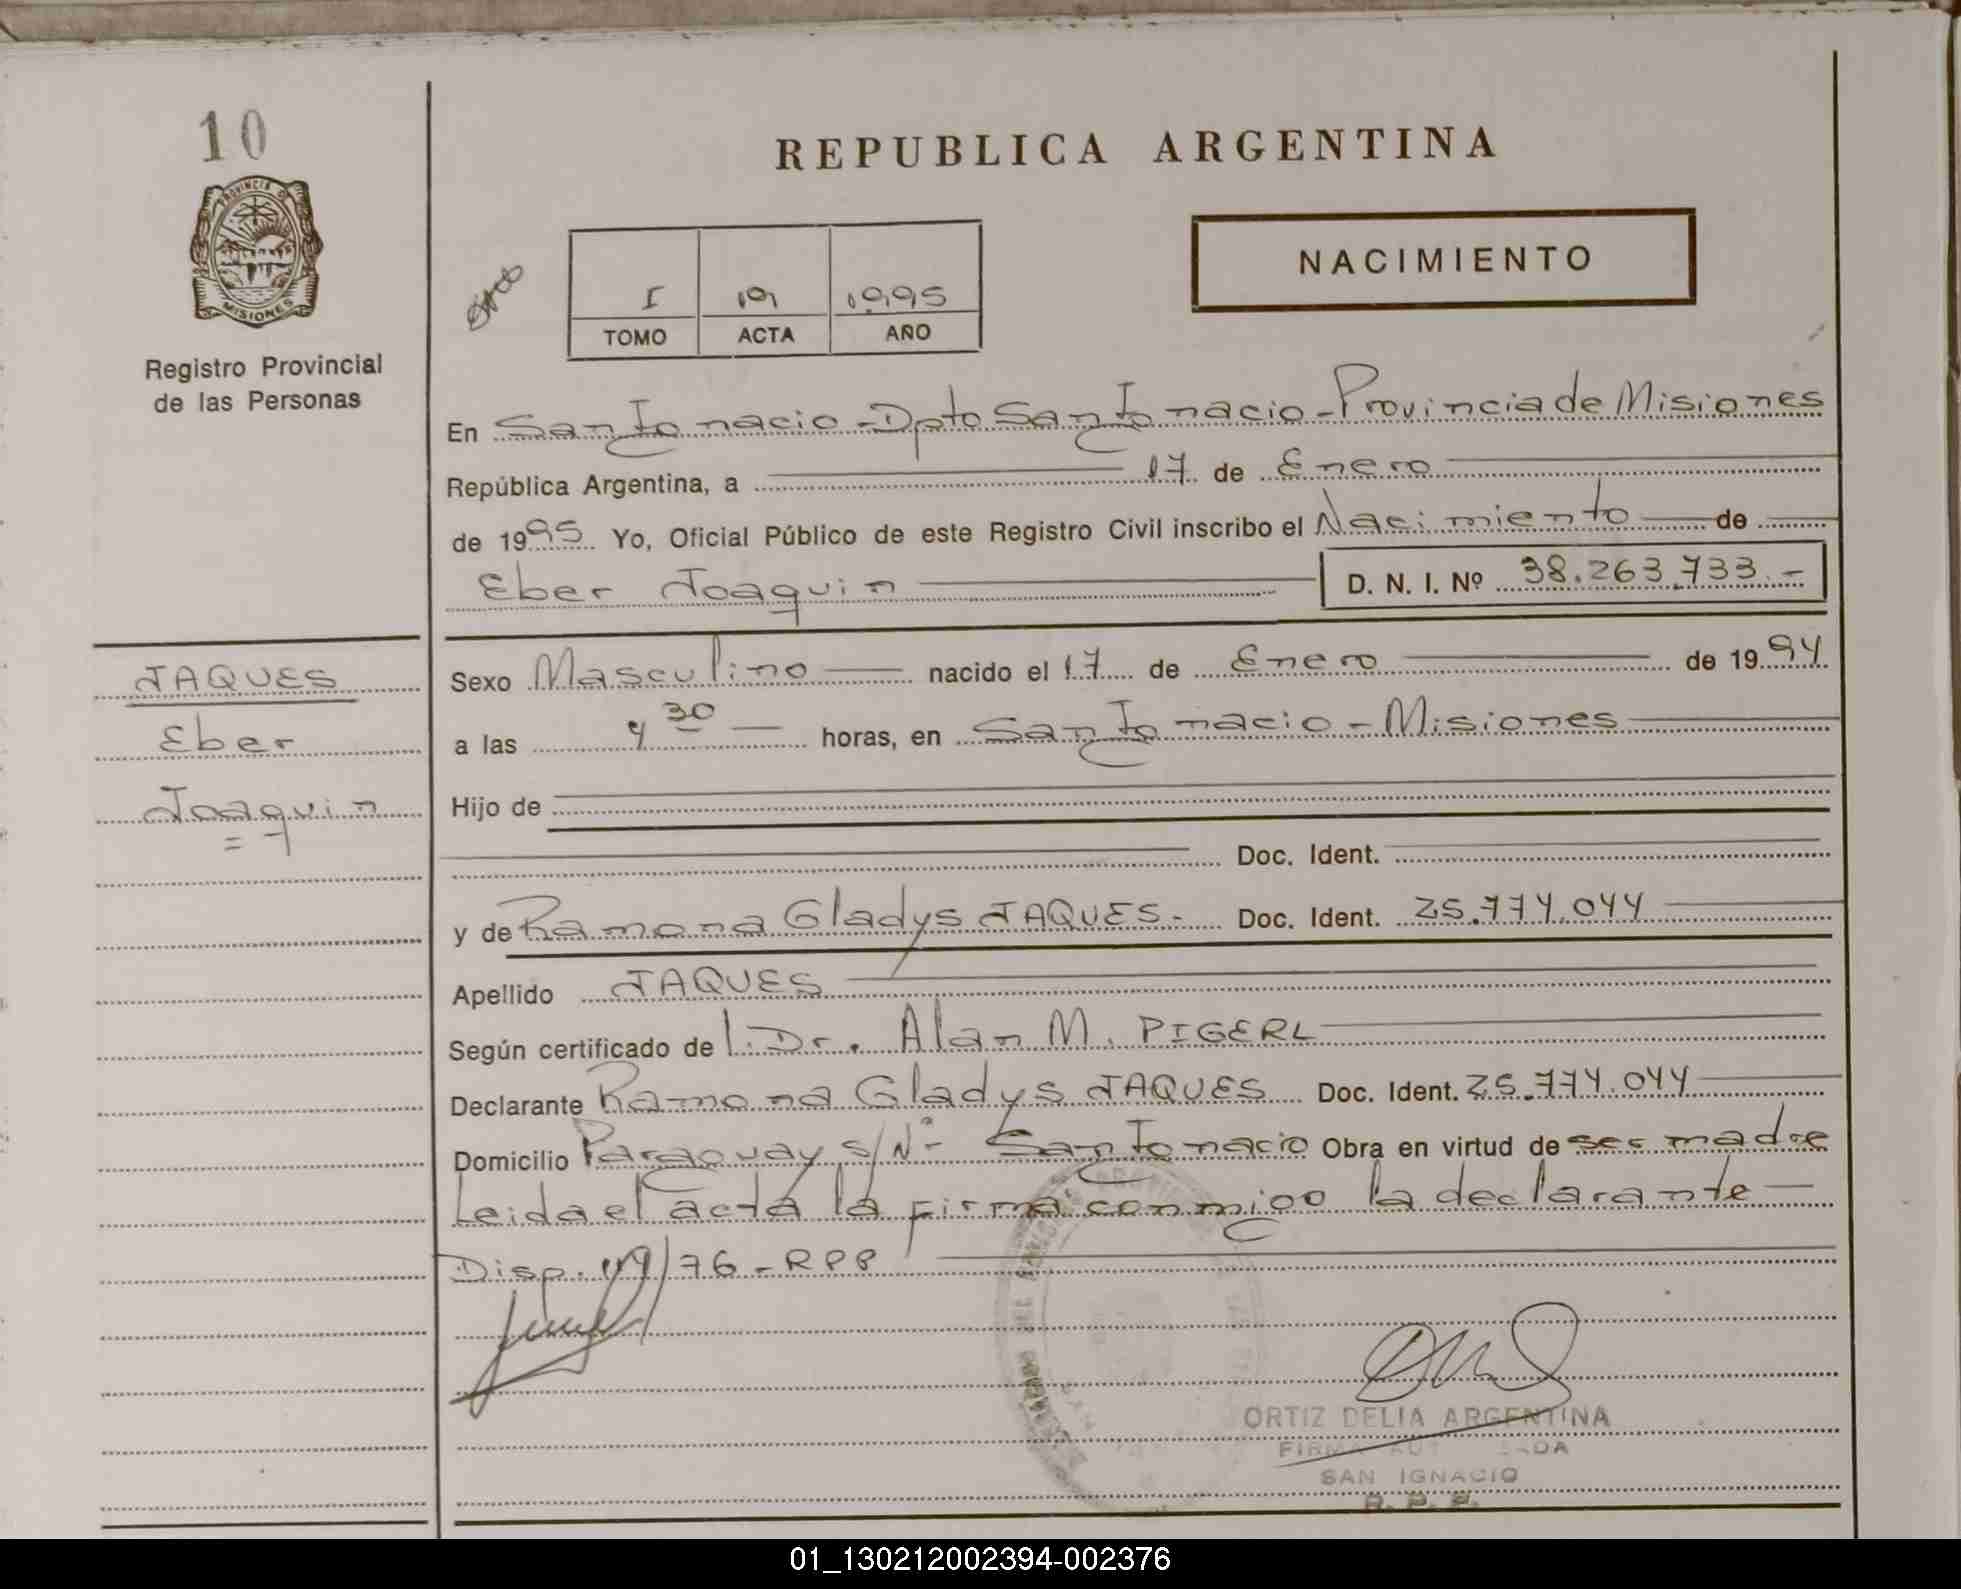 10
PROVINCIA DE
MISIONES
Registro Provincial
de las Personas
REPUBLICA ARGENTINA
NACIMIENTO
I 19 1995
TOMO ACTA AÑO
En San Ignacio - Dpto San Ignacio - Provincia de Misiones
República Argentina, a 17 de Enero
de 1995 Yo, Oficial Público de este Registro Civil inscribo el Nacimiento de
Eber Joaquin D. N. I. Nº 38.263.733.-
JAQUES
Eber
Joaquin
Sexo Masculino nacido el 17 de Enero de 1994
a las 4 30 horas, en San Ignacio - Misiones
Hijo de
Doc. Ident.
y de Ramona Gladys JAQUES.- Doc. Ident. 25.774.044
Apellido JAQUES
Según certificado de l Dr. Alan M. PIGERL
Declarante Ramona Gladys JAQUES Doc. Ident. 25.774.044
Domicilio Paraguay s/Nº- San Ignacio Obra en virtud de ser madre
Leida el acta la firma conmigo la declarante
Disp. 119/76 - RPP
ORTIZ DELIA ARGENTINA
FIRMA
SAN IGNACIO
R. P. P.
01_130212002394-002376